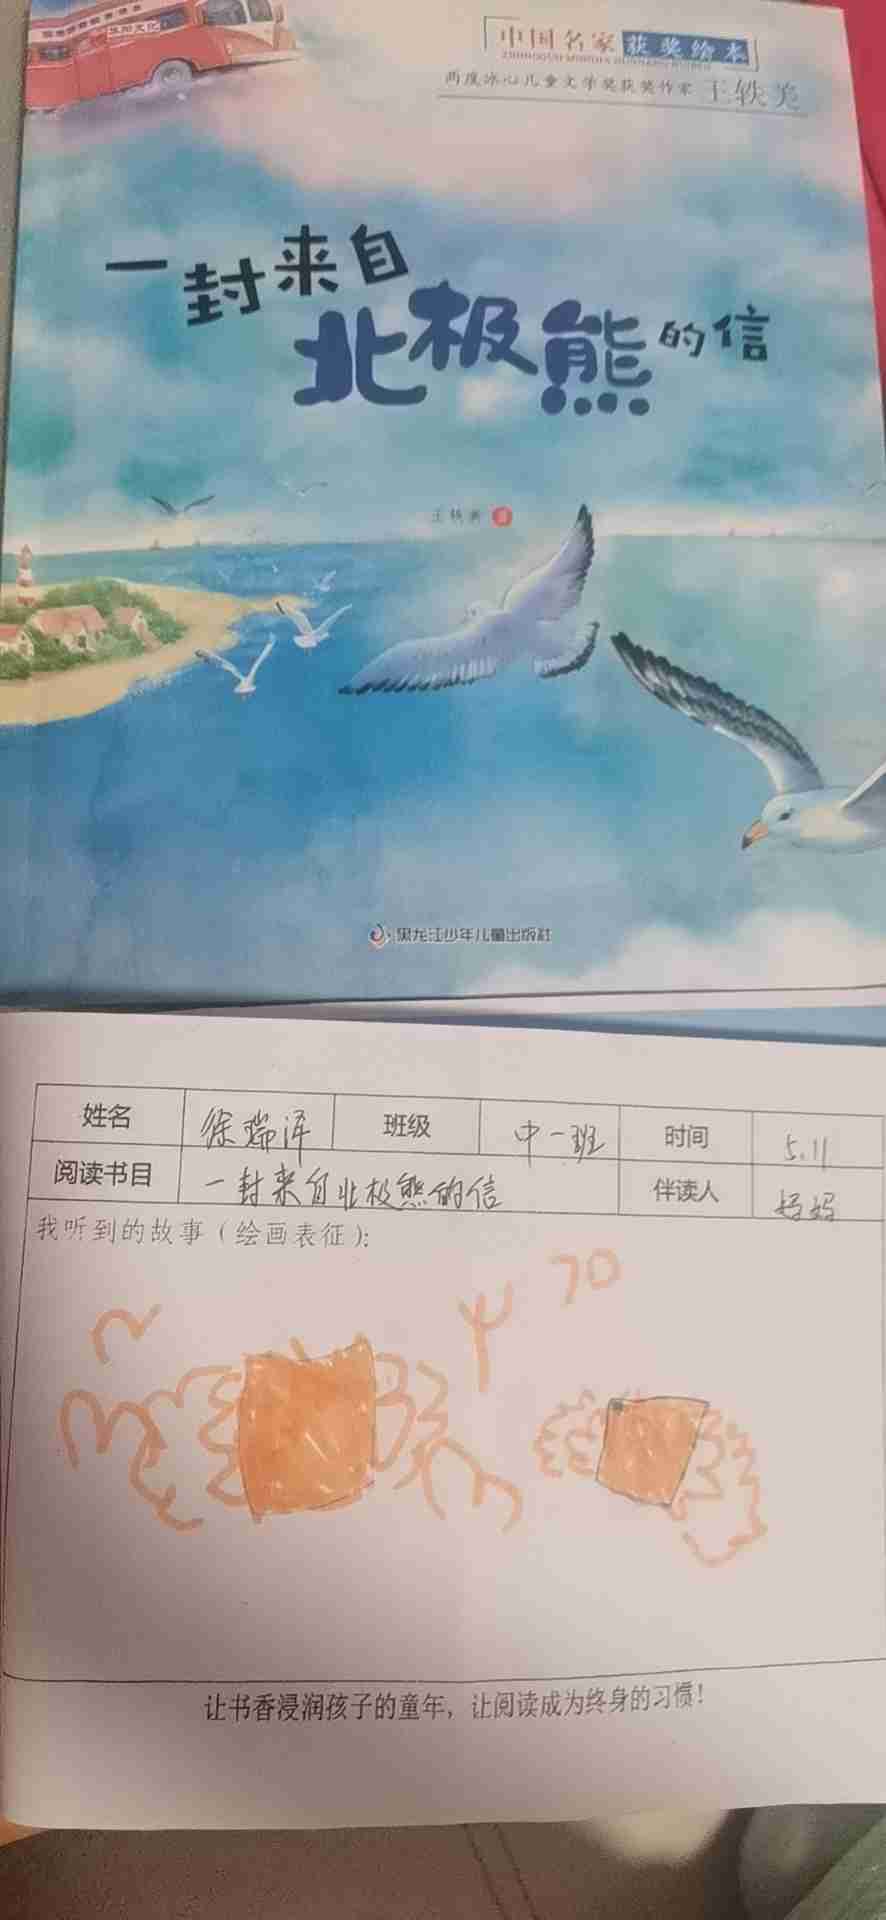 中国名家获奖绘本
两度冰心儿童文学奖获奖作家 王轶美
一封来自
北极熊的信
王轶美 著
黑龙江少年儿童出版社
姓名 徐瑞泽 班级 中一班 时间 5.11
阅读书目 一封来自北极熊的信 伴读人 妈妈
我听到的故事（绘画表征）：
70
让书香浸润孩子的童年，让阅读成为终身的习惯！